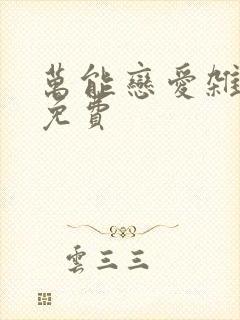 萬能戀愛雜
免費
雲三三